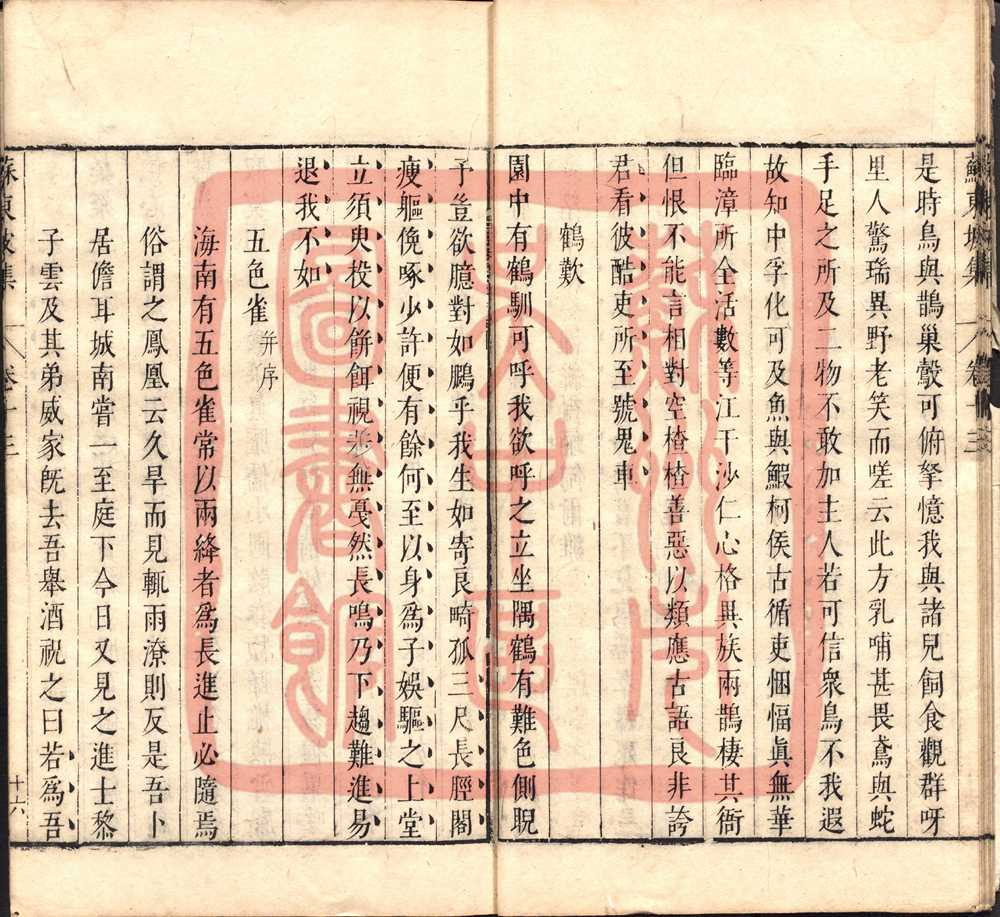 蘇東坡集 卷十三
是時鳥與鵲巢鷇可俯拏憶我與諸兒飼食觀群呀
里人驚瑞異野老笑而嗟云此方乳哺甚畏鳶與蛇
手足之所及二物不敢加主人若可信衆鳥不我遐
故知中孚化可及魚與鰕柯侯古循吏悃愊真無華
臨漳所全活數等江干沙仁心格異族兩鵲棲其衙
但恨不能言相對空楂楂善惡以類應古語良非誇
君看彼酷吏所至號鬼車
鶴歎
園中有鶴馴可呼我欲呼之立坐隅鶴有難色側睨
予豈欲臆對如鵬乎我生如寄良畸孤三尺長脛閣
瘦軀俛啄少許便有餘何至以身爲子娛驅之上堂
立須臾投以餅餌視若無戞然長鳴乃下趨難進易
退我不如
五色雀 并序
海南有五色雀常以兩絳者爲長進止必隨焉
俗謂之鳳凰云久旱而見輒雨潦則反是吾卜
居儋耳城南嘗一至庭下今日又見之進士黎
子雲及其弟威家旣去吾舉酒祝之曰若爲吾
蘇東坡集 卷十三 十六
蘇州大學圖書館